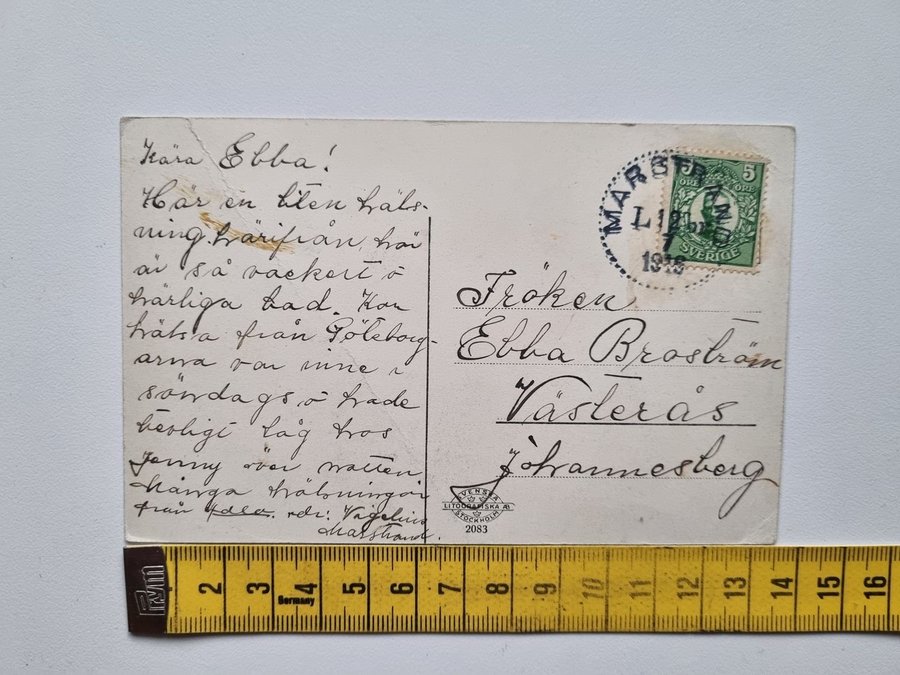 Kära Ebba!
Här en liten häls-
ning härifrån, här
är så vackert o
härliga bad. Kan
hälsa från Göteborg-
arna var inne i
söndags o hade
låg hos
Jenny över natten
Många hälsningar
från
Marstrand.
MARSTRAND
1916
5 5
ÖRE ÖRE
SVERIGE
Fröken
Ebba Broström
Västerås
Johannesberg
SVENSKA
LITOGRAFISKA AB
STOCKHOLM
2083
2 3 4 5 6 7 8 9 10 11 12 13 14 15 16
Germany